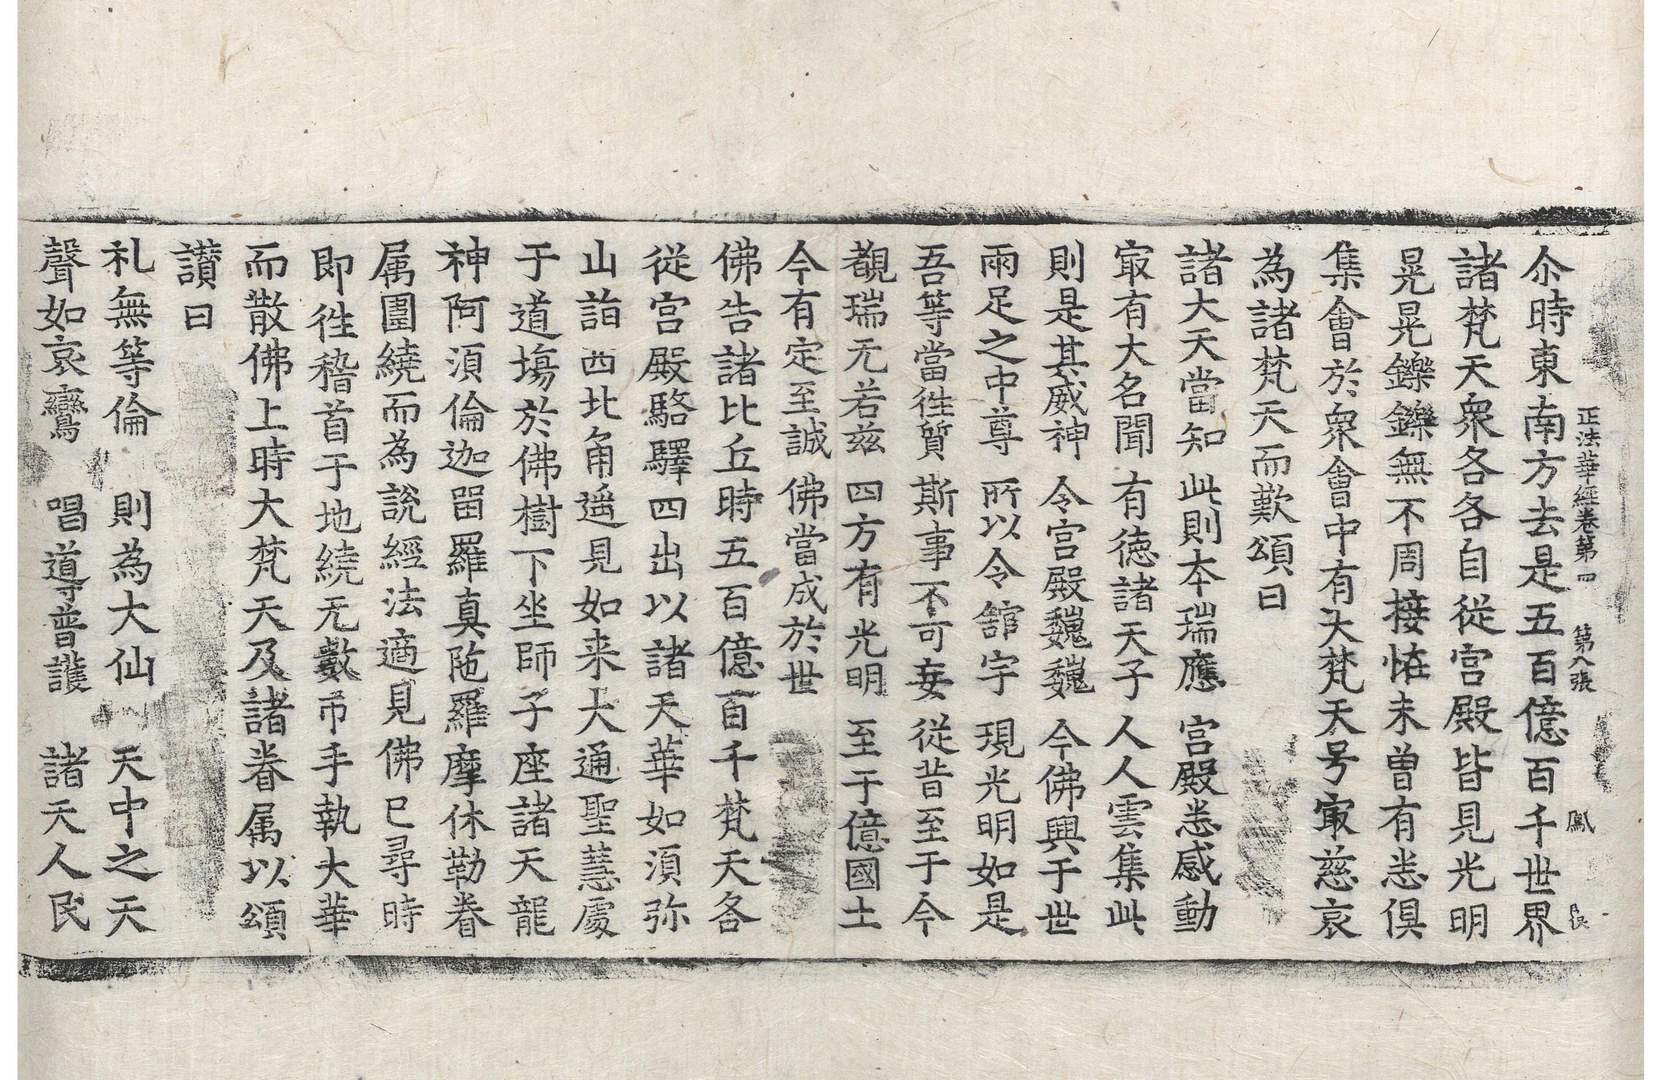 正法華經卷第四　第八張　鳳　長
尒時東南方去是五百億百千世界
諸梵天衆各各自從宫殿皆見光明
晃晃鑠鑠無不周接恠未曾有悉俱
集會於衆會中有大梵天号冣慈哀
為諸梵天而歎頌曰
諸大天當知　此則本瑞應　宫殿悉感動
冣有大名聞　有德諸天子　人人雲集此
則是其威神　令宫殿巍巍　今佛興于世
兩足之中尊　所以令舘宇　現光明如是
吾等當徃質　斯事不可妄　從昔至于今
覩瑞无若兹　四方有光明　至于億國土
今有定至誠　佛當成於世
佛告諸比丘時五百億百千梵天各
從宫殿駱驛四出以諸天華如須弥
山詣西北角遥見如来大通聖慧處
于道塲於佛樹下坐師子座諸天龍
神阿須倫迦留羅真陁羅摩休勒眷
属圍繞而為說經法適見佛已尋時
即徃稽首于地繞无數帀手執大華
而散佛上時大梵天及諸眷属以頌
讃曰
礼無等倫　則為大仙　天中之天
聲如哀鸞　唱導普護　諸天人民